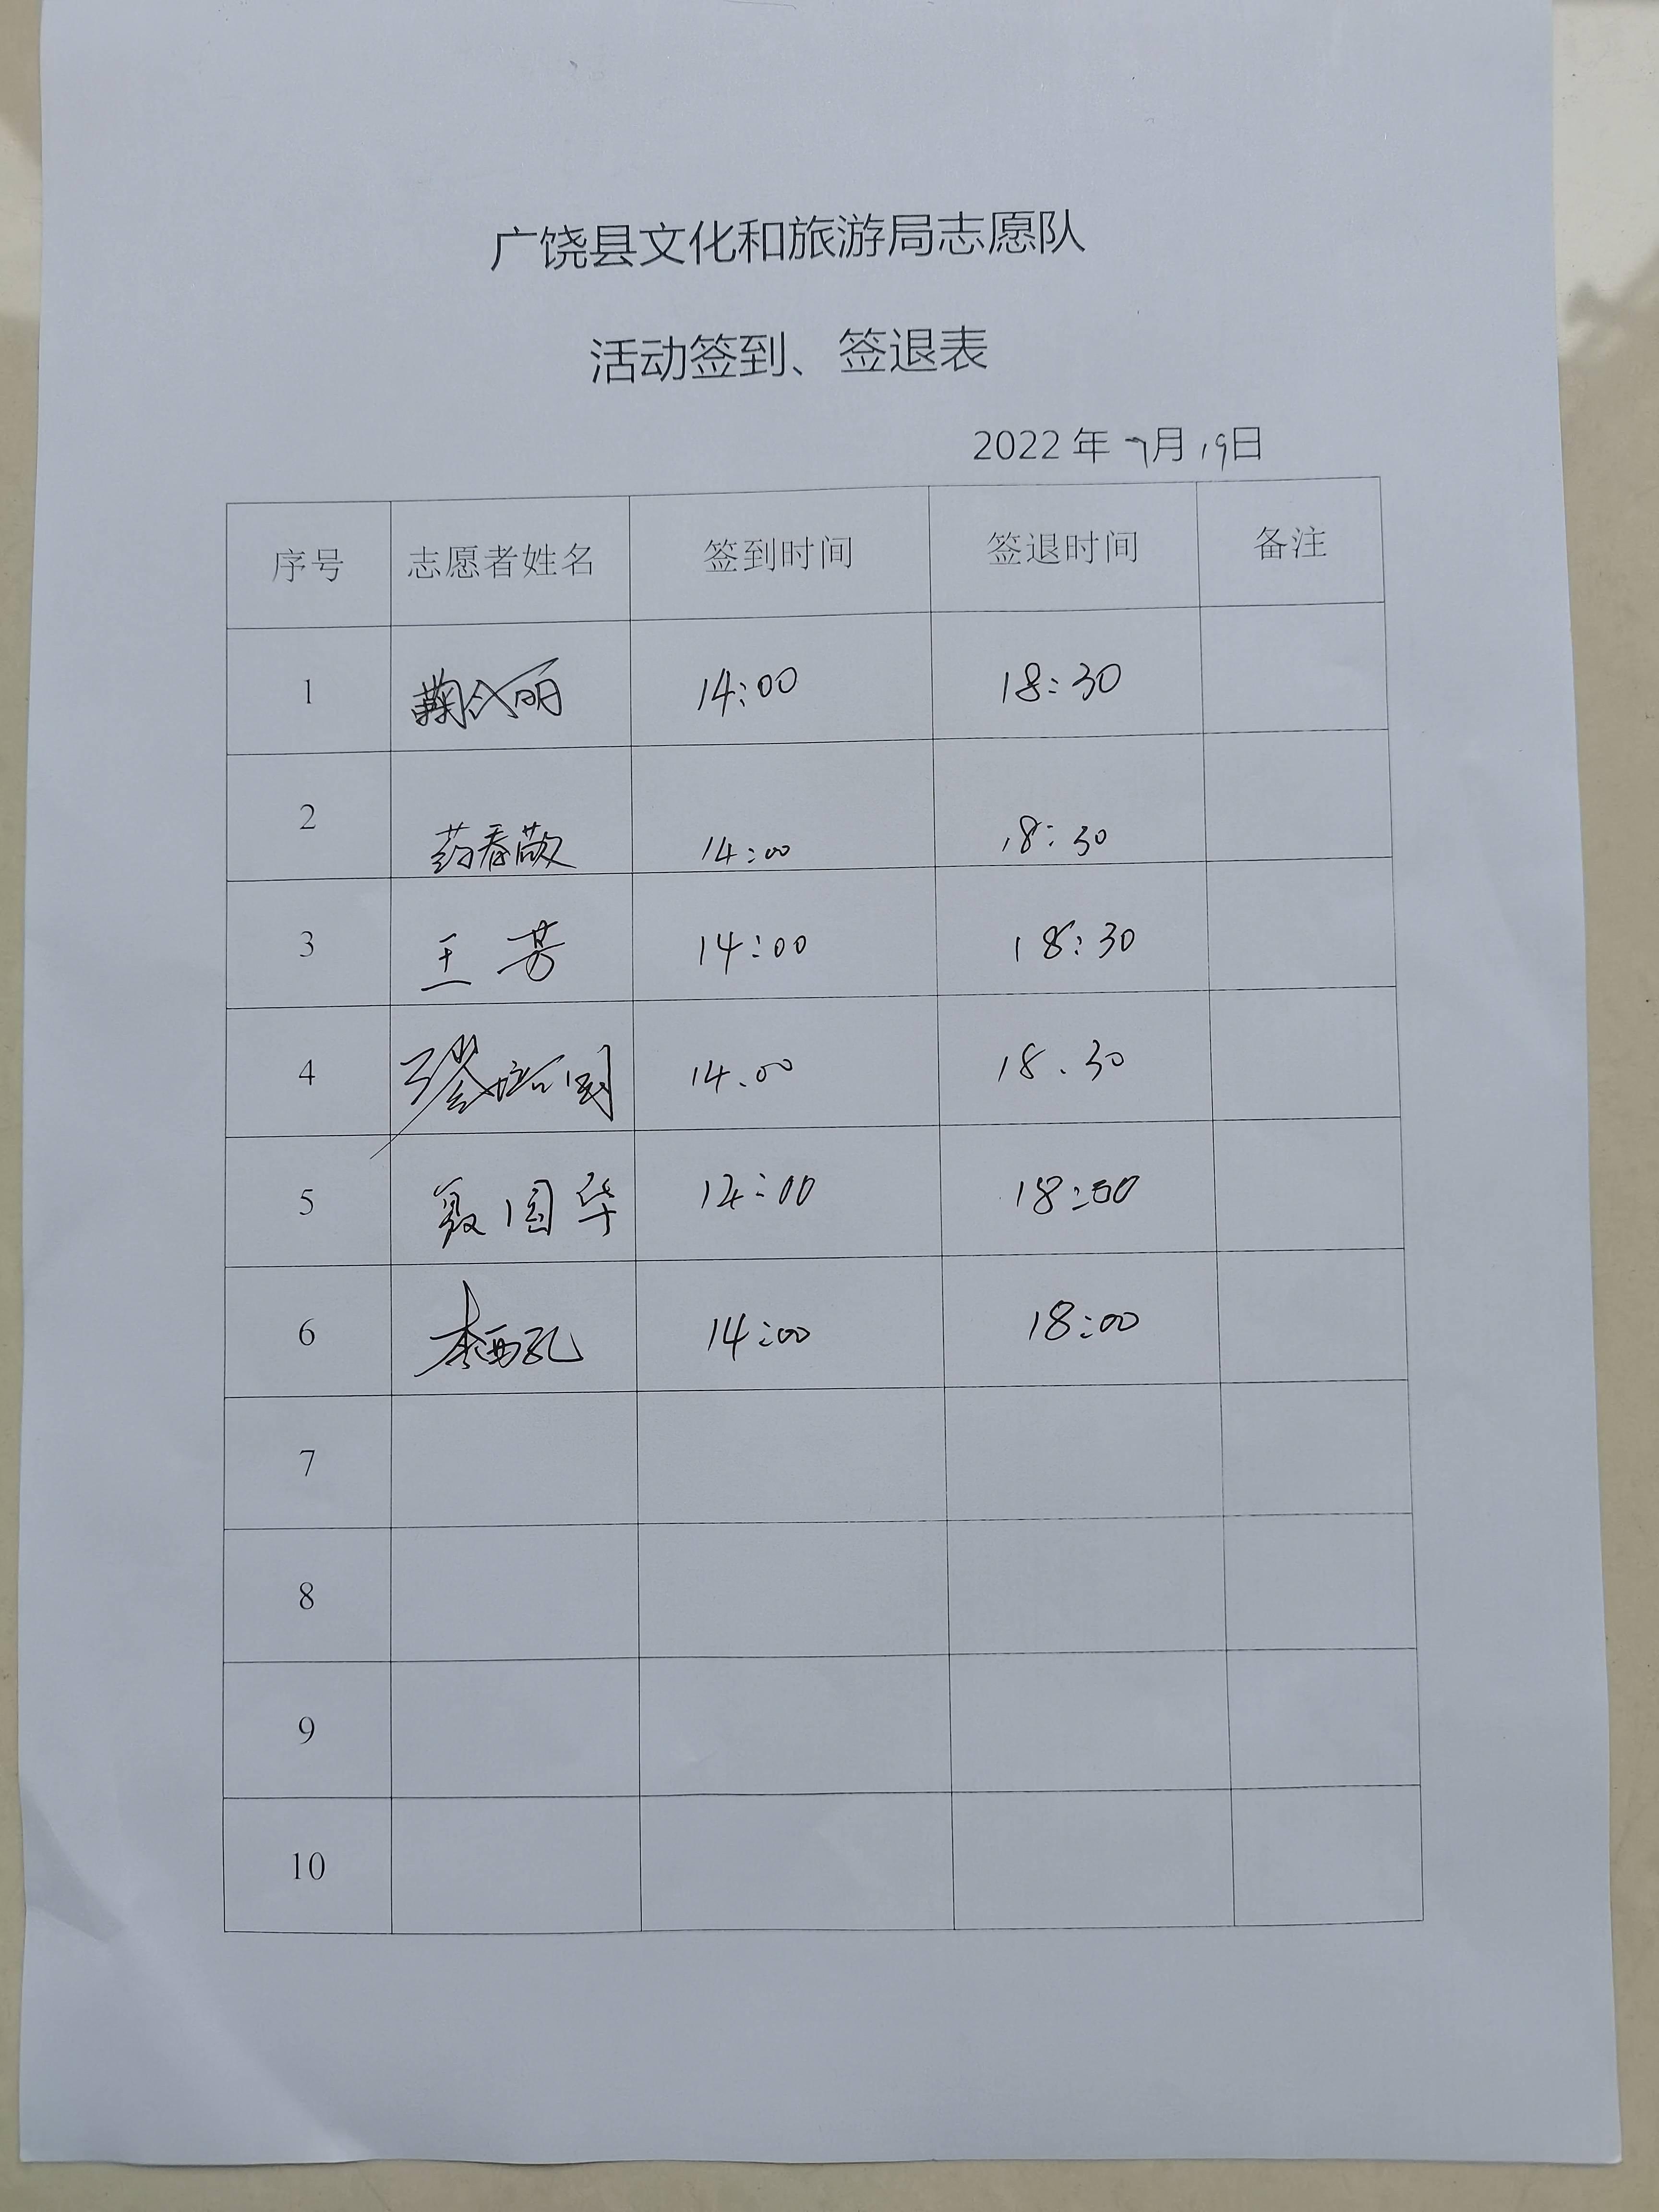 广饶县文化和旅游局志愿队
活动签到、签退表
2022年7月19日
序号 志愿者姓名 签到时间 签退时间 备注
1 14:00 18:30
2 14:00 18:30
3 王芳 14:00 18:30
4 14.00 18.30
5 聂国华 14:00 18:00
6 14:00 18:00
7
8
9
10